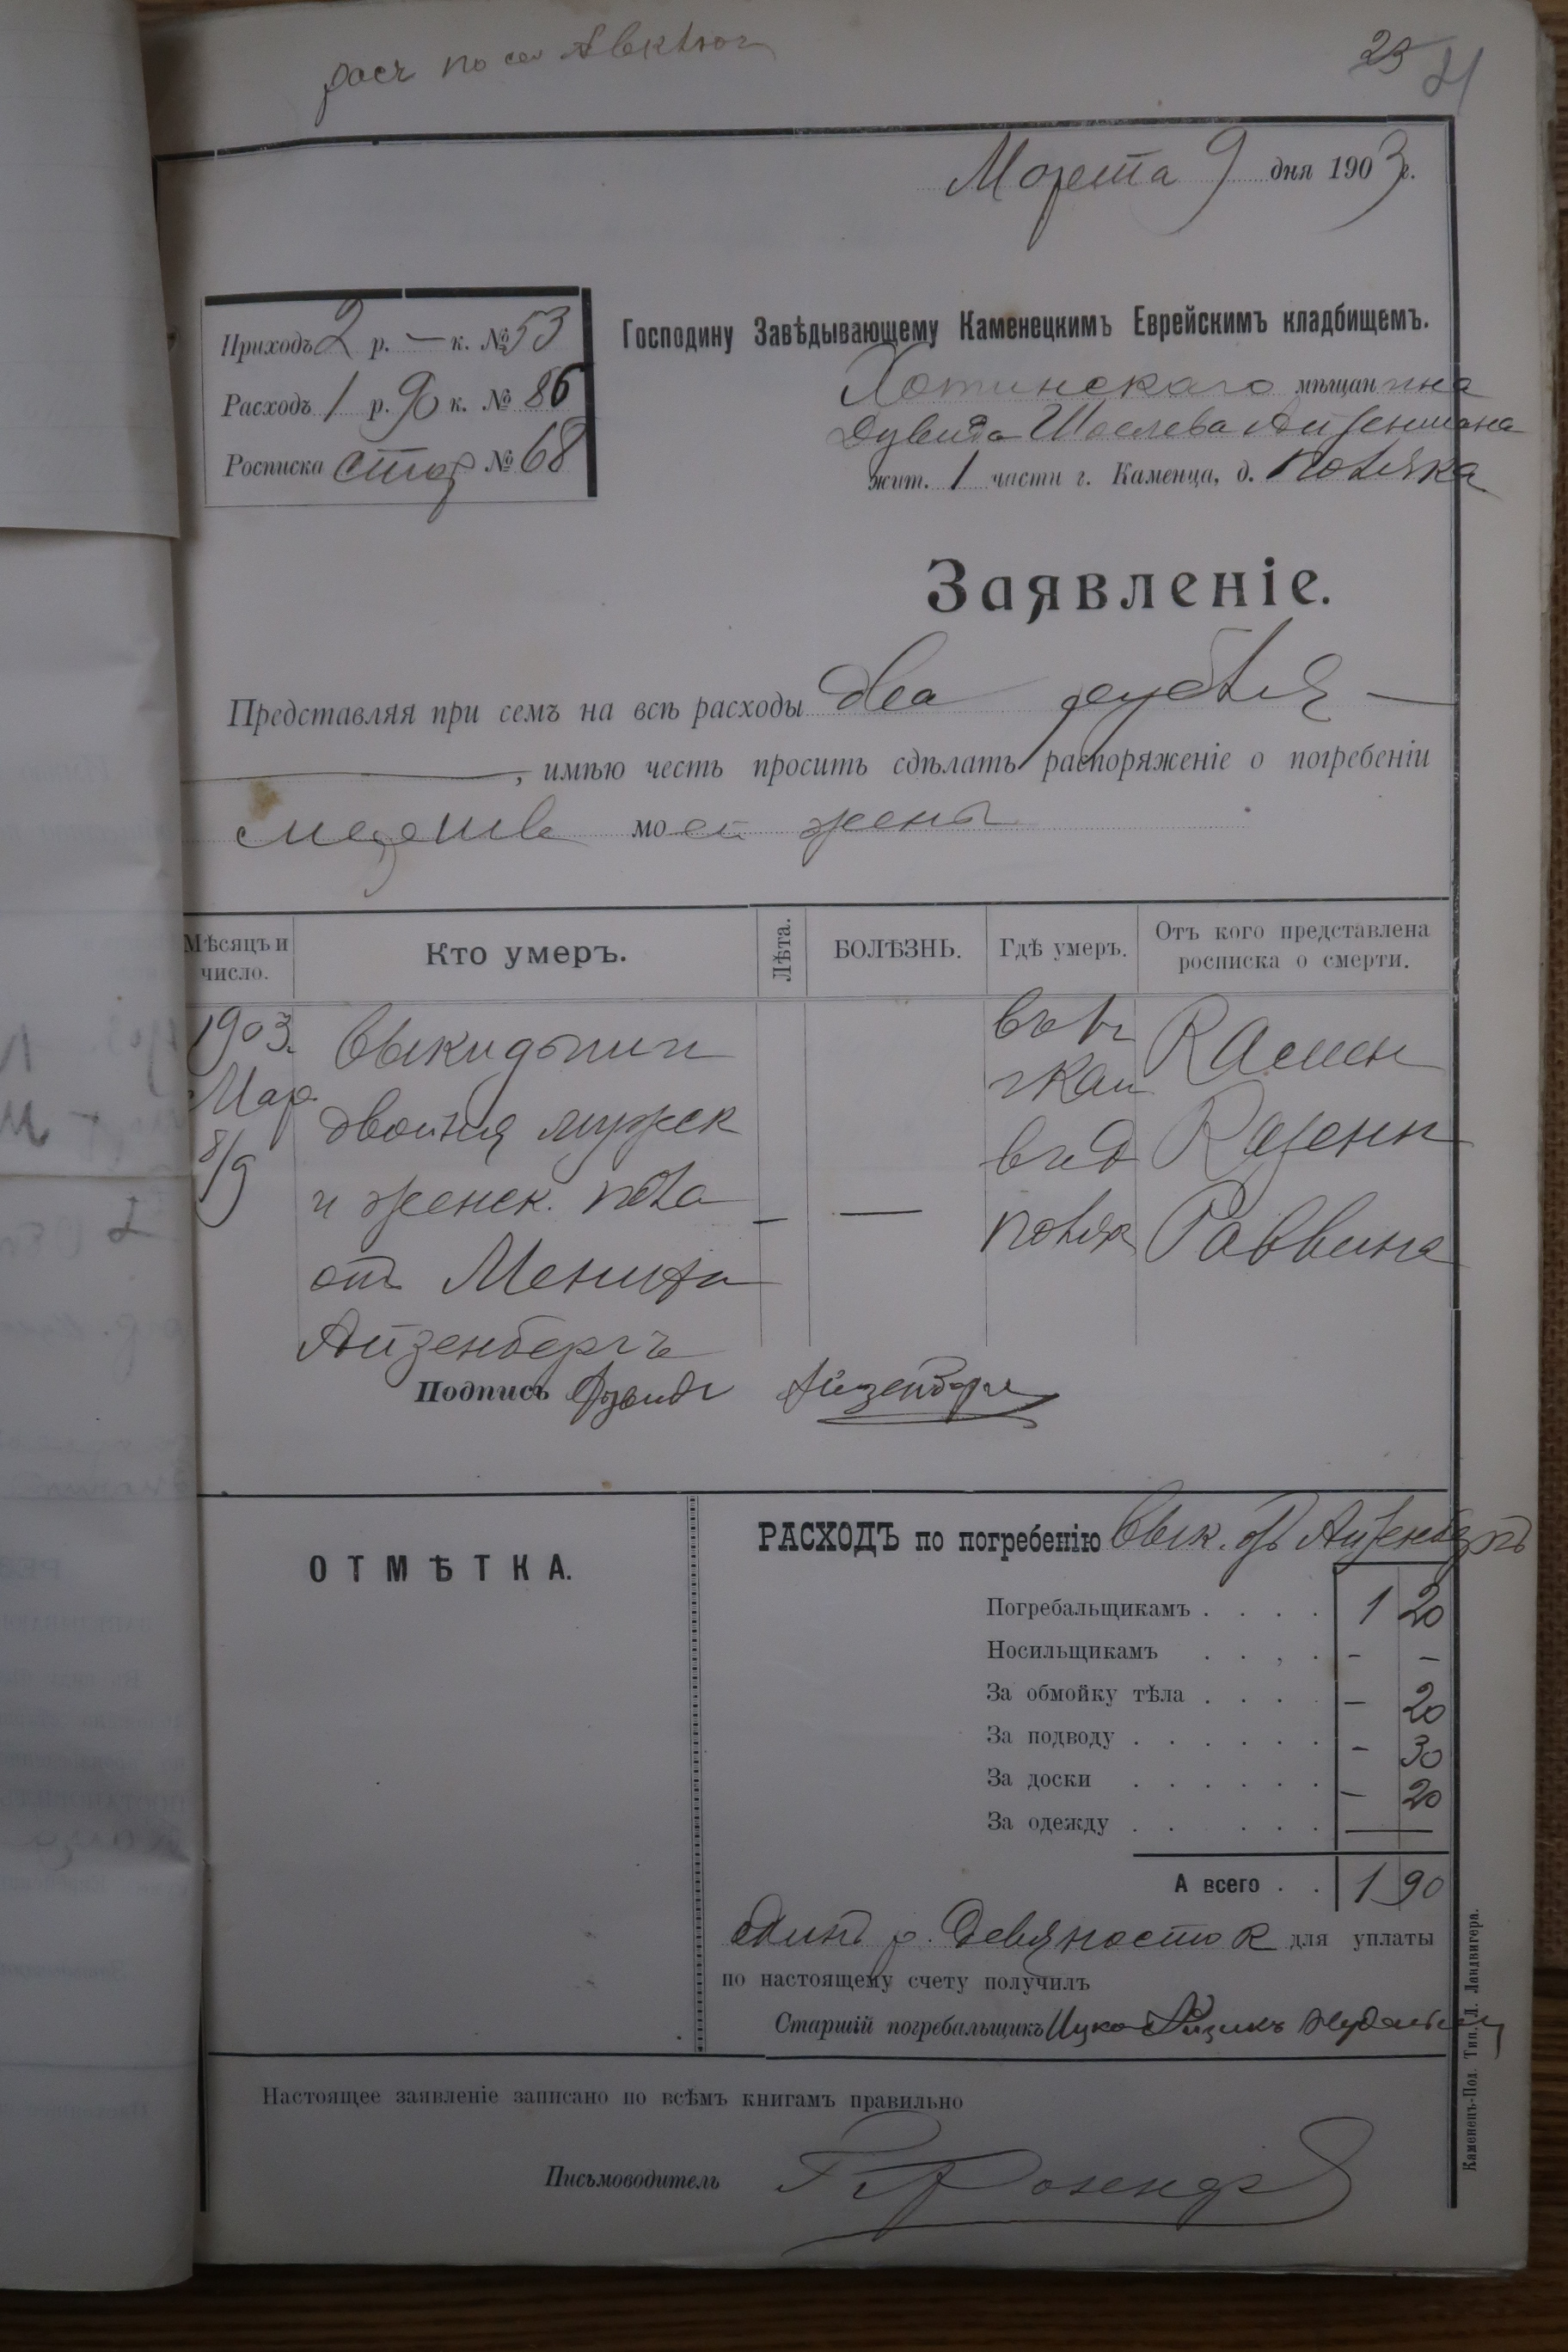 23 21
Марта 9 дня 1903 г.
Приходъ 2 р. — к. № 53
Расходъ 1 р. 90 к. № 86
Росписка стар № 68
Господину Завѣдывающему Каменецкимъ Еврейскимъ кладбищемъ.
Хотинскаго мѣщанина
Дувида
жит. 1 части г. Каменца, д. Поляка
Заявленіе.
Представляя при семъ на всѣ расходы два рубля —
, имѣю честь просить сдѣлать распоряженіе о погребеніи
моей жены
Мѣсяцъ и число. Кто умеръ. Лѣта. БОЛѢЗНЬ. Гдѣ умеръ. Отъ кого представлена росписка о смерти.
1903. Мар. 8/9
выкидыши
двойня мужск
и женск. пола
отъ
Айзенбергъ
— —
въ г
Кам
въ д
Поляк
Камен
Казенн
Раввина
Подпись Дувидъ Айзенбергъ
ОТМѢТКА.
РАСХОДЪ по погребенію Вык. отъ Айзенбергъ
Погребальщикамъ . . . . 1 20
Носильщикамъ . . , . - -
За обмойку тѣла . . . . — 20
За подводу . . . . . . - 30
За доски . . . . . . — 20
За одежду . . . . . . —
А всего . . 1 90
одинъ р. девяносто к для уплаты
по настоящему счету получилъ
Старшій погребальщикъ Ицко Айзикъ
Настоящее заявленіе записано по всѣмъ книгамъ правильно
Письмоводитель
Каменецъ-Под. Тип. Л. Ландвигера.